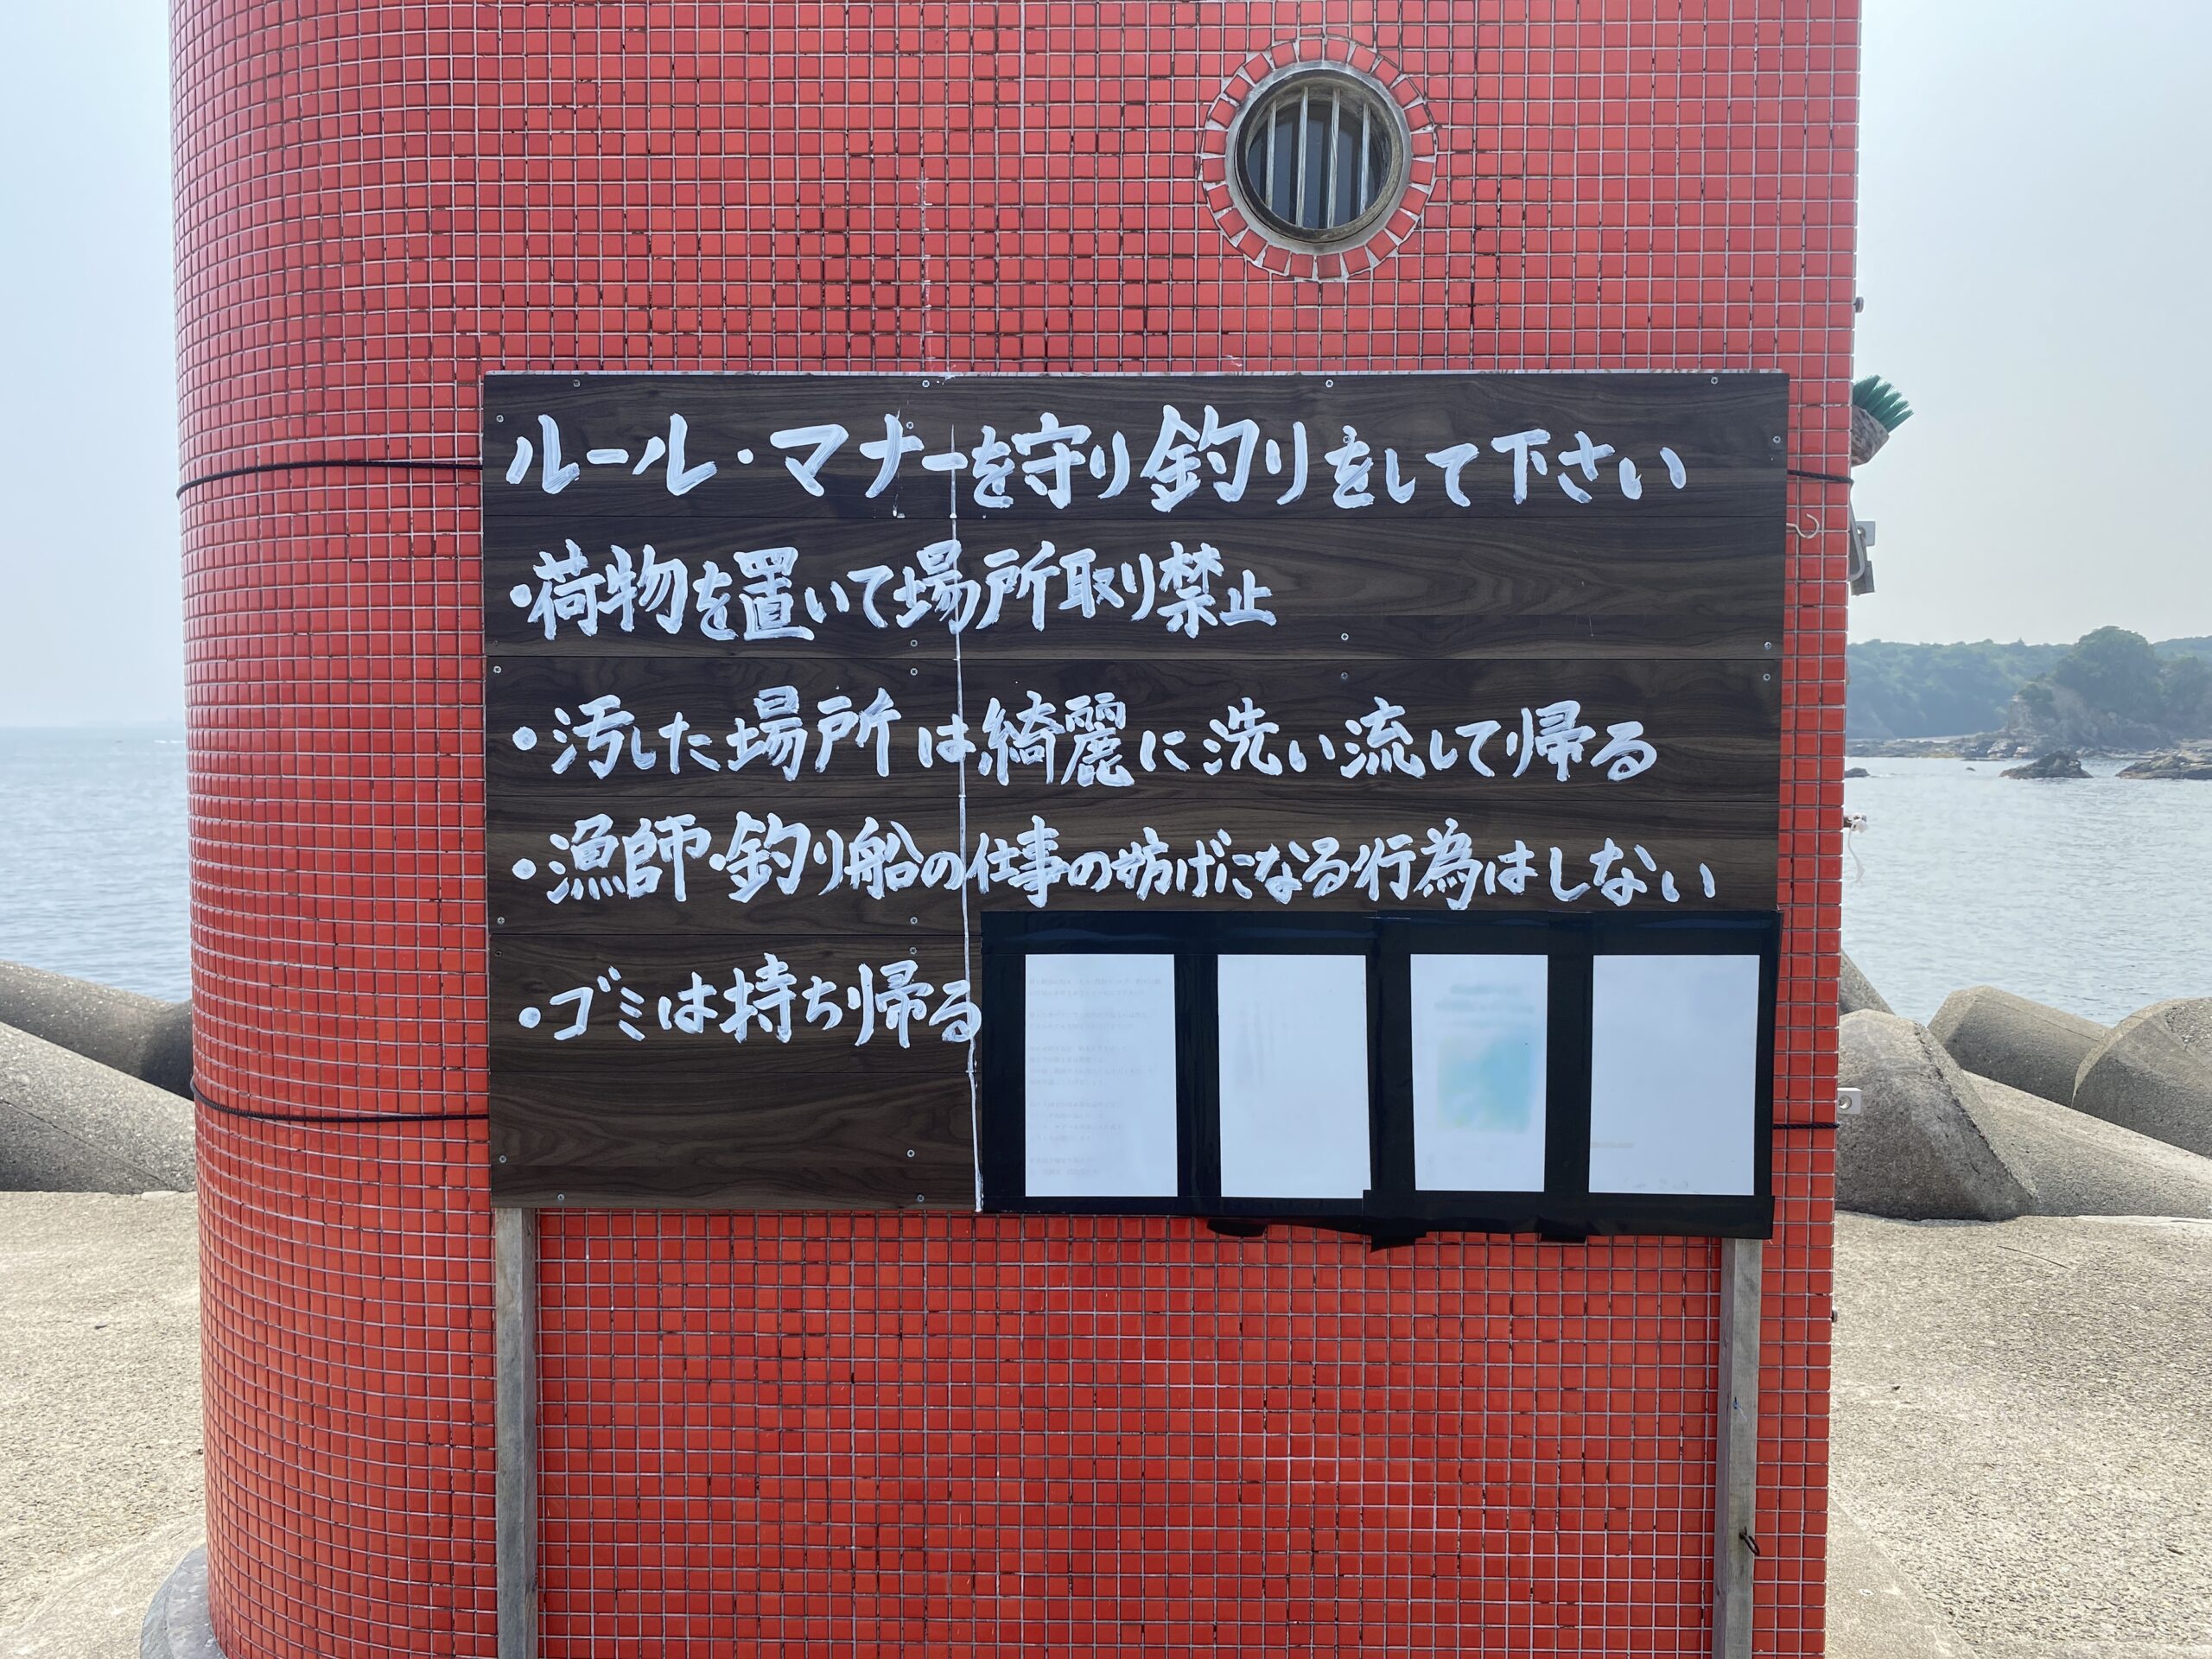 ルール・マナーを守り釣りをして下さい
・荷物を置いて場所取り禁止
・汚した場所は綺麗に洗い流して帰る
・漁師・釣り船の仕事の妨げになる行為はしない
・ゴミは持ち帰る